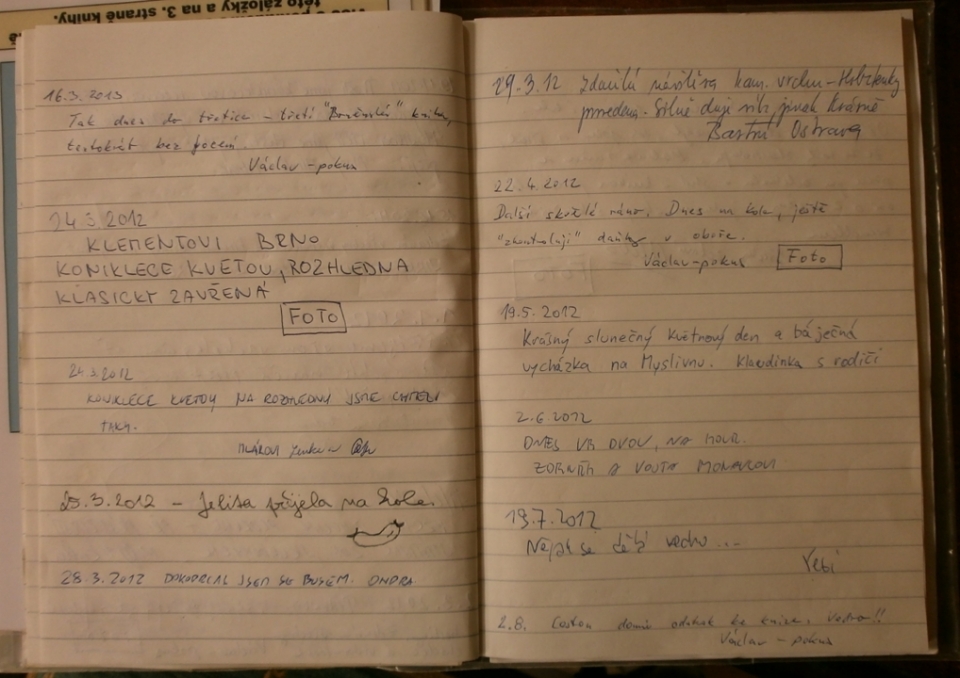 této záložky a na 3. straně knihy.
16.3.2013
Tak dnes do třetice - třetí "Bořeňská" kniha,
tentokrát bez focení.
Václav - pokus
24.3.2012
KLEMENTOVI BRNO
KONIKLECE KVETOU, ROZHLEDNA
KLASICKY ZAVŘENÁ
FOTO
24.3.2012
KONIKLECE KVETOU NA ROZHLEDNU JSME CHTĚLI
TAKY.
25.3.2012 - Jelisa přijela na kole.
28.3.2012 DOKODRCAL JSEM SE BUSEM. ONDRA
29.3.12 Zdařilá návštěva
Silně duje jinak krásně
Ostrava
22.4.2012
Další skvělé ráno. Dnes na kole, ještě
"zkontroluji" daňky v oboře.
Václav-pokus
Foto
19.5.2012
Krásný slunečný květnový den a báječná
vycházka na Myslivnu. Klaudinka s rodiči
2.6.2012
DNES VE DVOU, NA
ZDENĚK A VOJTA
19.7.2012
Nějak se dělá vedro...
2.8. Cestou domů ke knize. Vedro!!
Václav - pokus